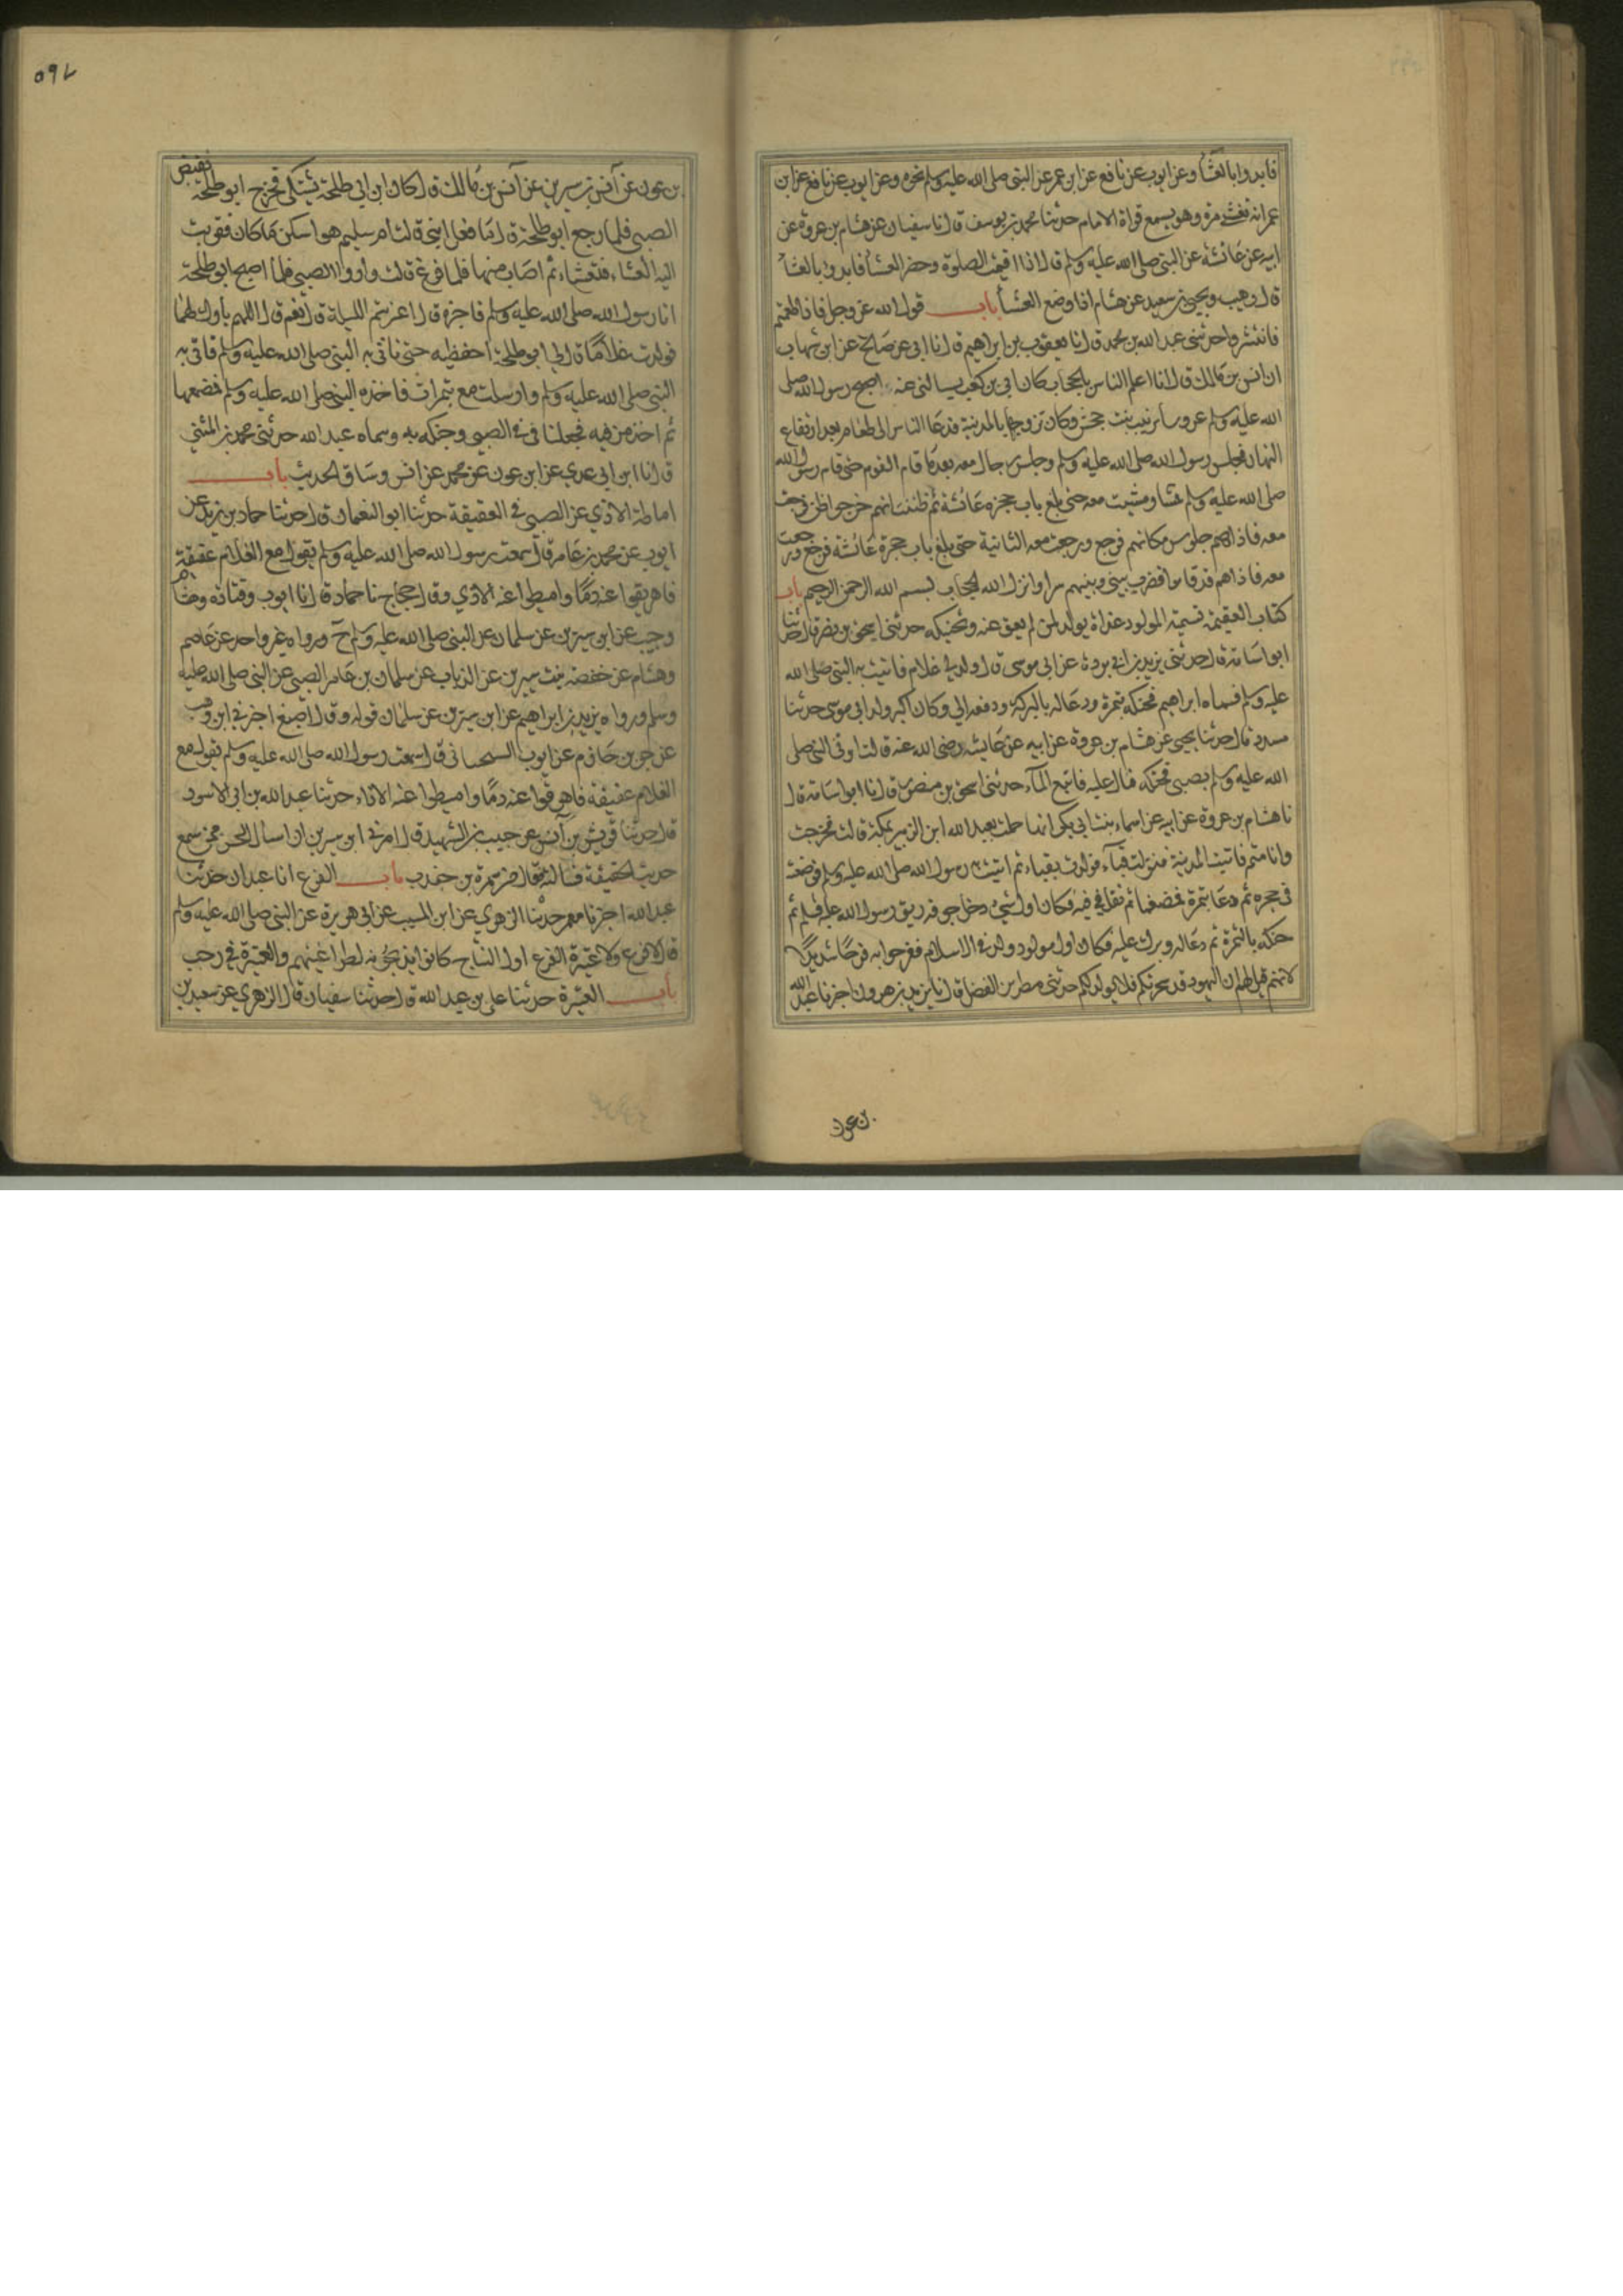 فابدوا بالعشاء وعن ايوب عن نافع عن ابن عمر عن النبي صلى الله عليه وسلم نحوه وعن ايوب عن نافع عن ابن
عمر انه تعشى مرة وهو يسمع قراة الامام حدثنا محمد بن يوسف قال نا سفيان عن هشام بن عروة عن
ابيه عن عائشة عن النبي صلى الله عليه وسلم قال اذا اقيمت الصلوة وحضر العشا فابدوا بالعشا
قال وهيب ويحيى بن سعيد عن هشام اذا وضع العشا باب قول الله عز وجل فاذا طعمتم
فانتشروا حدثني عبد الله بن محمد قال نا يعقوب بن ابراهيم قال نا ابي عن صالح عن ابن شهاب
ان انس بن مالك قال انا اعلم الناس بالحجاب كان ابي بن كعب يسالني عنه اصبح رسول الله صلى
الله عليه وسلم عروسا بزينب بنت جحش وكان تزوجها بالمدينة فدعا الناس الى طعام بعد ارتفاع
النهار فجلس رسول الله صلى الله عليه وسلم وجلس رجال معه بعد ما قام القوم حتى قام رسول الله
صلى الله عليه وسلم فمشا ومشيت معه حتى بلغ باب حجرة عائشة ثم ظننت انهم خرجوا فرجعت
معه فاذا هم جلوس مكانهم فرجع ورجعت معه الثانية حتى بلغ باب حجرة عائشة فرجع ورجعت
معه فاذا هم قد قاموا فضرب بيني وبينهم سترا وانزل الله الحجاب بسم الله الرحمن الرحيم باب
كتاب العقيقة تسمية المولود غداة يولد لمن لم يعق عنه وتحنيكه حدثني اسحق بن نصر قال حدثنا
ابو اسامة قال حدثني يزيد بن ابي بردة عن ابي موسى قال ولد لي غلام فاتيت به النبي صلى الله
عليه وسلم فسماه ابراهيم فحنكه بتمرة ودعا له بالبركة ودفعه الي وكان اكبر ولد ابي موسى حدثنا
مسدد قال حدثنا يحيى عن هشام بن عروة عن ابيه عن عايشه رضي الله عنه قالت اوتي النبي صلى
الله عليه وسلم بصبي فحنكه فبال عليه فاتبع المآء حدثني اسحق بن منصور قال نا ابو اسامة قال
نا هشام بن عروة عن ابيه عن اسماء بنت ابي بكر انها حملت بعبد الله ابن الزبير بمكة قالت فخرجت
وانا متم فاتيت المدينة فنزلت قبآء فولدت بقباء ثم اتيت رسول الله صلى الله عليه وسلم فوضعته
في حجره ثم دعا بتمرة فمضغها ثم تفل في فيه فكان اول شيء دخل جوفه ريق رسول الله عليه وسلم ثم
حنكه بالتمرة ثم دعا له وبرك عليه فكان اول مولود ولد في الاسلام ففرحوا به فرحا شديدا
لانهم قيل لهم ان اليهود قد سحرتكم فلا يولد لكم حدثني مطر بن الفضل قال نا يزيد بن هرون اخبرنا عبد الله
بن عون
٥٩٧
بن عون عن انس بن سيرين عن انس بن مالك قال كان ابن ابي طلحة يشتكي فخرج ابو طلحة فقبض
الصبي فلما رجع ابو طلحة قال ما فعل ابني قالت ام سليم هو اسكن ما كان فقربت
اليه العشاء فتعشاء ثم اصاب منها فلما فرغ قالت واروا الصبي فلما اصبح ابو طلحة
اتا رسول الله صلى الله عليه وسلم فاخبره قال اعرستم الليلة قال نعم قال اللهم بارك لهما
فولدت غلاما قال لي ابو طلحة احفظيه حتى ناتي به النبي صلى الله عليه وسلم فاتي به
النبي صلى الله عليه وسلم وارسلت معه بتمرات فاخذه النبي صلى الله عليه وسلم فمضغها
ثم اخذ من فيه فجعلها في في الصبي وحنكه به وسماه عبد الله حدثني محمد بن المثني
قال نا ابن ابي عدي عن ابن عون عن محمد عن انس وساق الحديث باب
اماطة الاذي عن الصبي في العقيقة حدثنا ابو النعمان قال حدثنا حماد بن زيد عن
ايوب عن محمد بن عامر قال سمعت رسول الله صلى الله عليه وسلم يقول مع الغلام عقيقة
فاهريقوا عنه دما واميطوا عنه الاذي وقال حجاج نا حماد قال نا ايوب وقتادة وهشام
وحبيب عن ابن سيرين عن سلمان عن النبي صلى الله عليه وسلم ح ورواه غير واحد عن عاصم
وهشام عن حفصة بنت سيرين عن الرباب عن سلمان بن عامر الضبي عن النبي صلى الله عليه
وسلم ورواه يزيد بن ابراهيم عن ابن سيرين عن سلمان قوله وقال اصبغ اخبرني ابن وهب
عن جرير بن حازم عن ايوب السختياني قال سمعت رسول الله صلى الله عليه وسلم يقول مع
الغلام عقيقة فاهرقوا عنه دما واميطوا عنه الاذاء حدثنا عبد الله بن ابي الاسود
قال حدثنا قريش بن انس عن حبيب بن الشهيد قال امرني ابن سيرين ان اسأل الحسن ممن سمع
حديث العقيقة فسالته فقال من سمرة بن جندب باب الفرع انا عبدان حدثنا
عبد الله اخبرنا معمر حدثنا الزهري عن ابن المسيب عن ابي هريرة عن النبي صلى الله عليه وسلم
قال لا فرع ولا عتيرة الفرع اول النتاج كانوا يذبحونه لطواغيتهم والعتيرة في رجب
باب العتيرة حدثنا علي بن عبد الله قال حدثنا سفيان قال الزهري عن سعيد بن